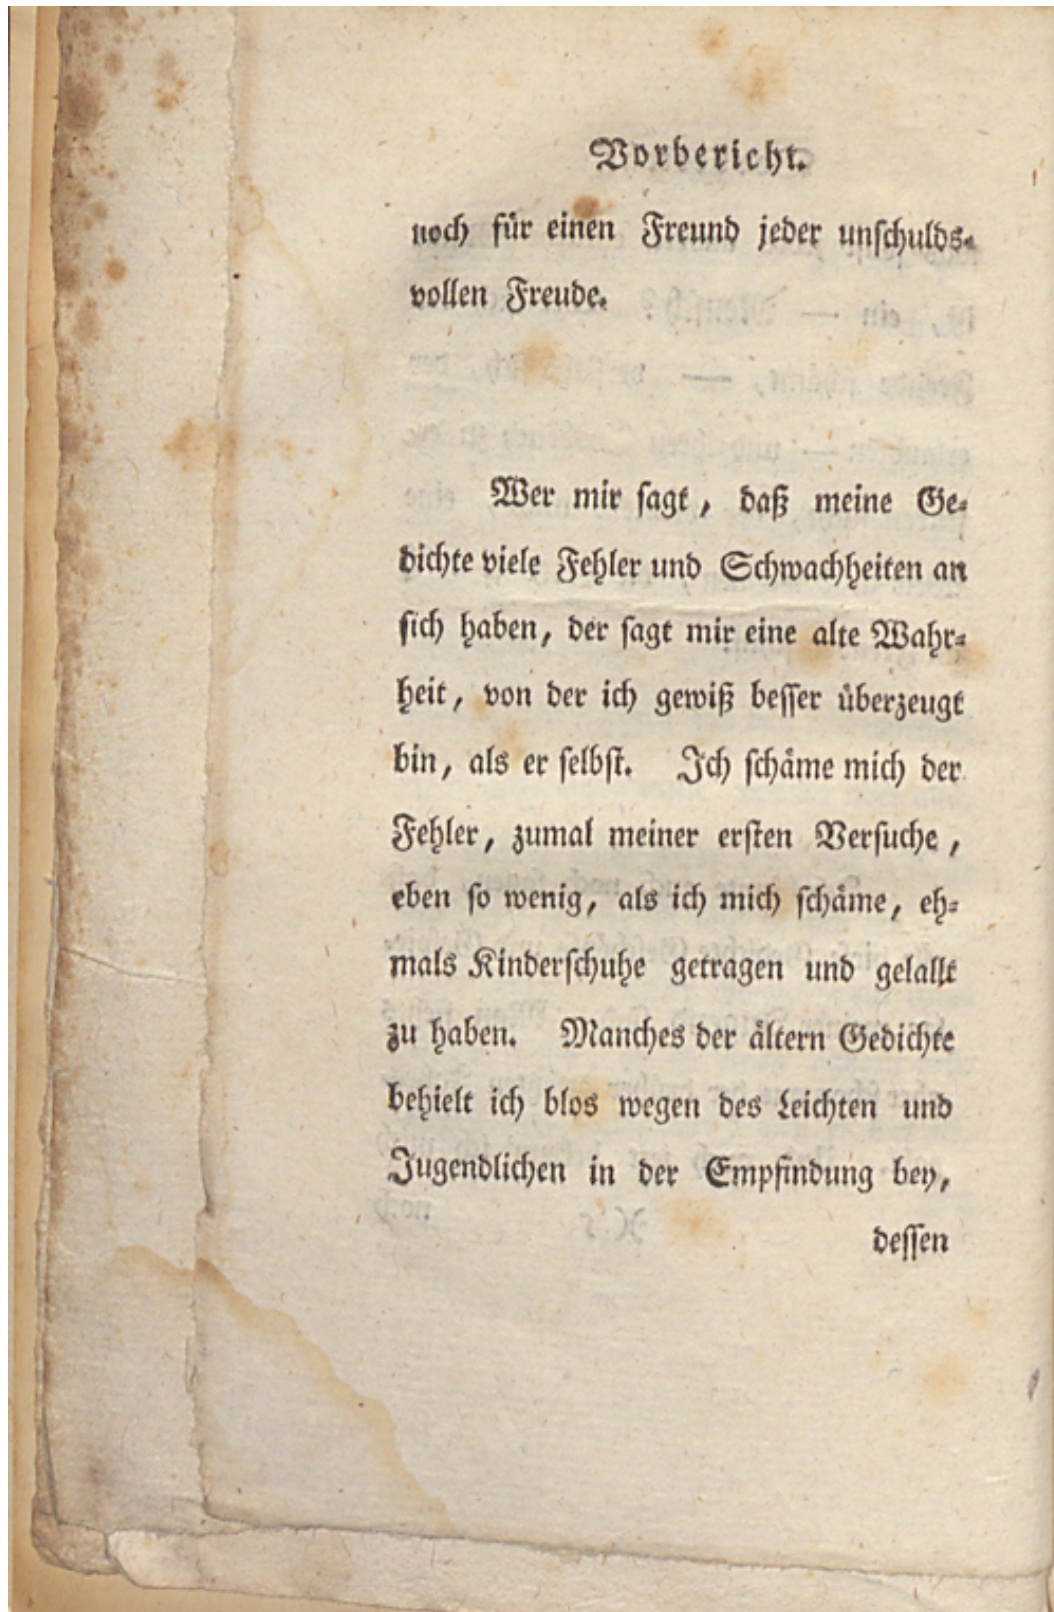 Vorbericht.
noch für einen Freund jeder unschulds-
vollen Freude.
Wer mir sagt, daß meine Ge-
dichte viele Fehler und Schwachheiten an
sich haben, der sagt mir eine alte Wahr-
heit, von der ich gewiß besser überzeugt
bin, als er selbst. Ich schäme mich der
Fehler, zumal meiner ersten Versuche,
eben so wenig, als ich mich schäme, eh-
mals Kinderschuhe getragen und gelallt
zu haben. Manches der ältern Gedichte
behielt ich blos wegen des Leichten und
Jugendlichen in der Empfindung bey,
dessen